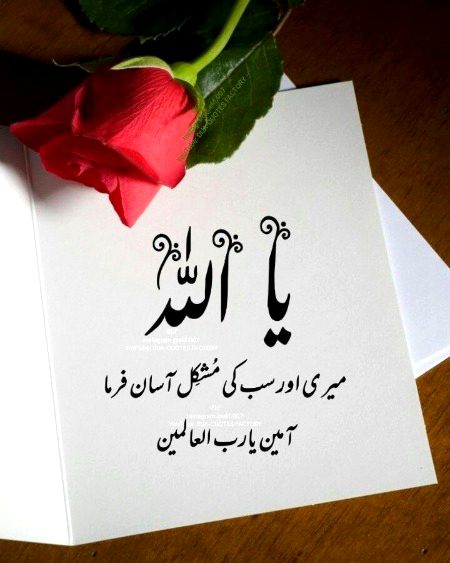 یا اللہ
میری اور سب کی مُشکِل آسان فرما
آمین یا رب العالمین